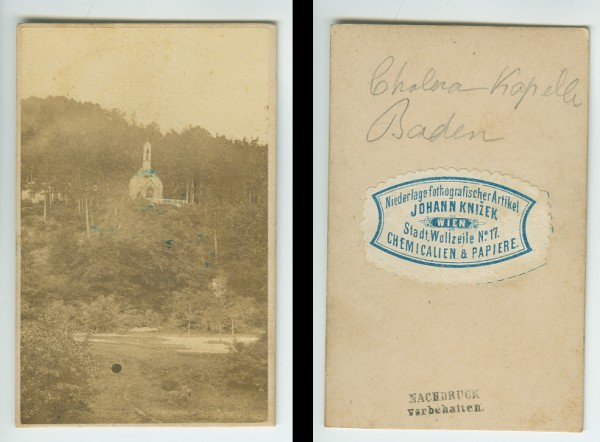 Cholera Kapelle
Baden
Niederlage fothografischer Artikel
JOHANN KNIŽEK
WIEN
Stadt, Wollzeile No. 17.
CHEMICALIEN & PAPIERE.
NACHDRUCK
vorbehalten.